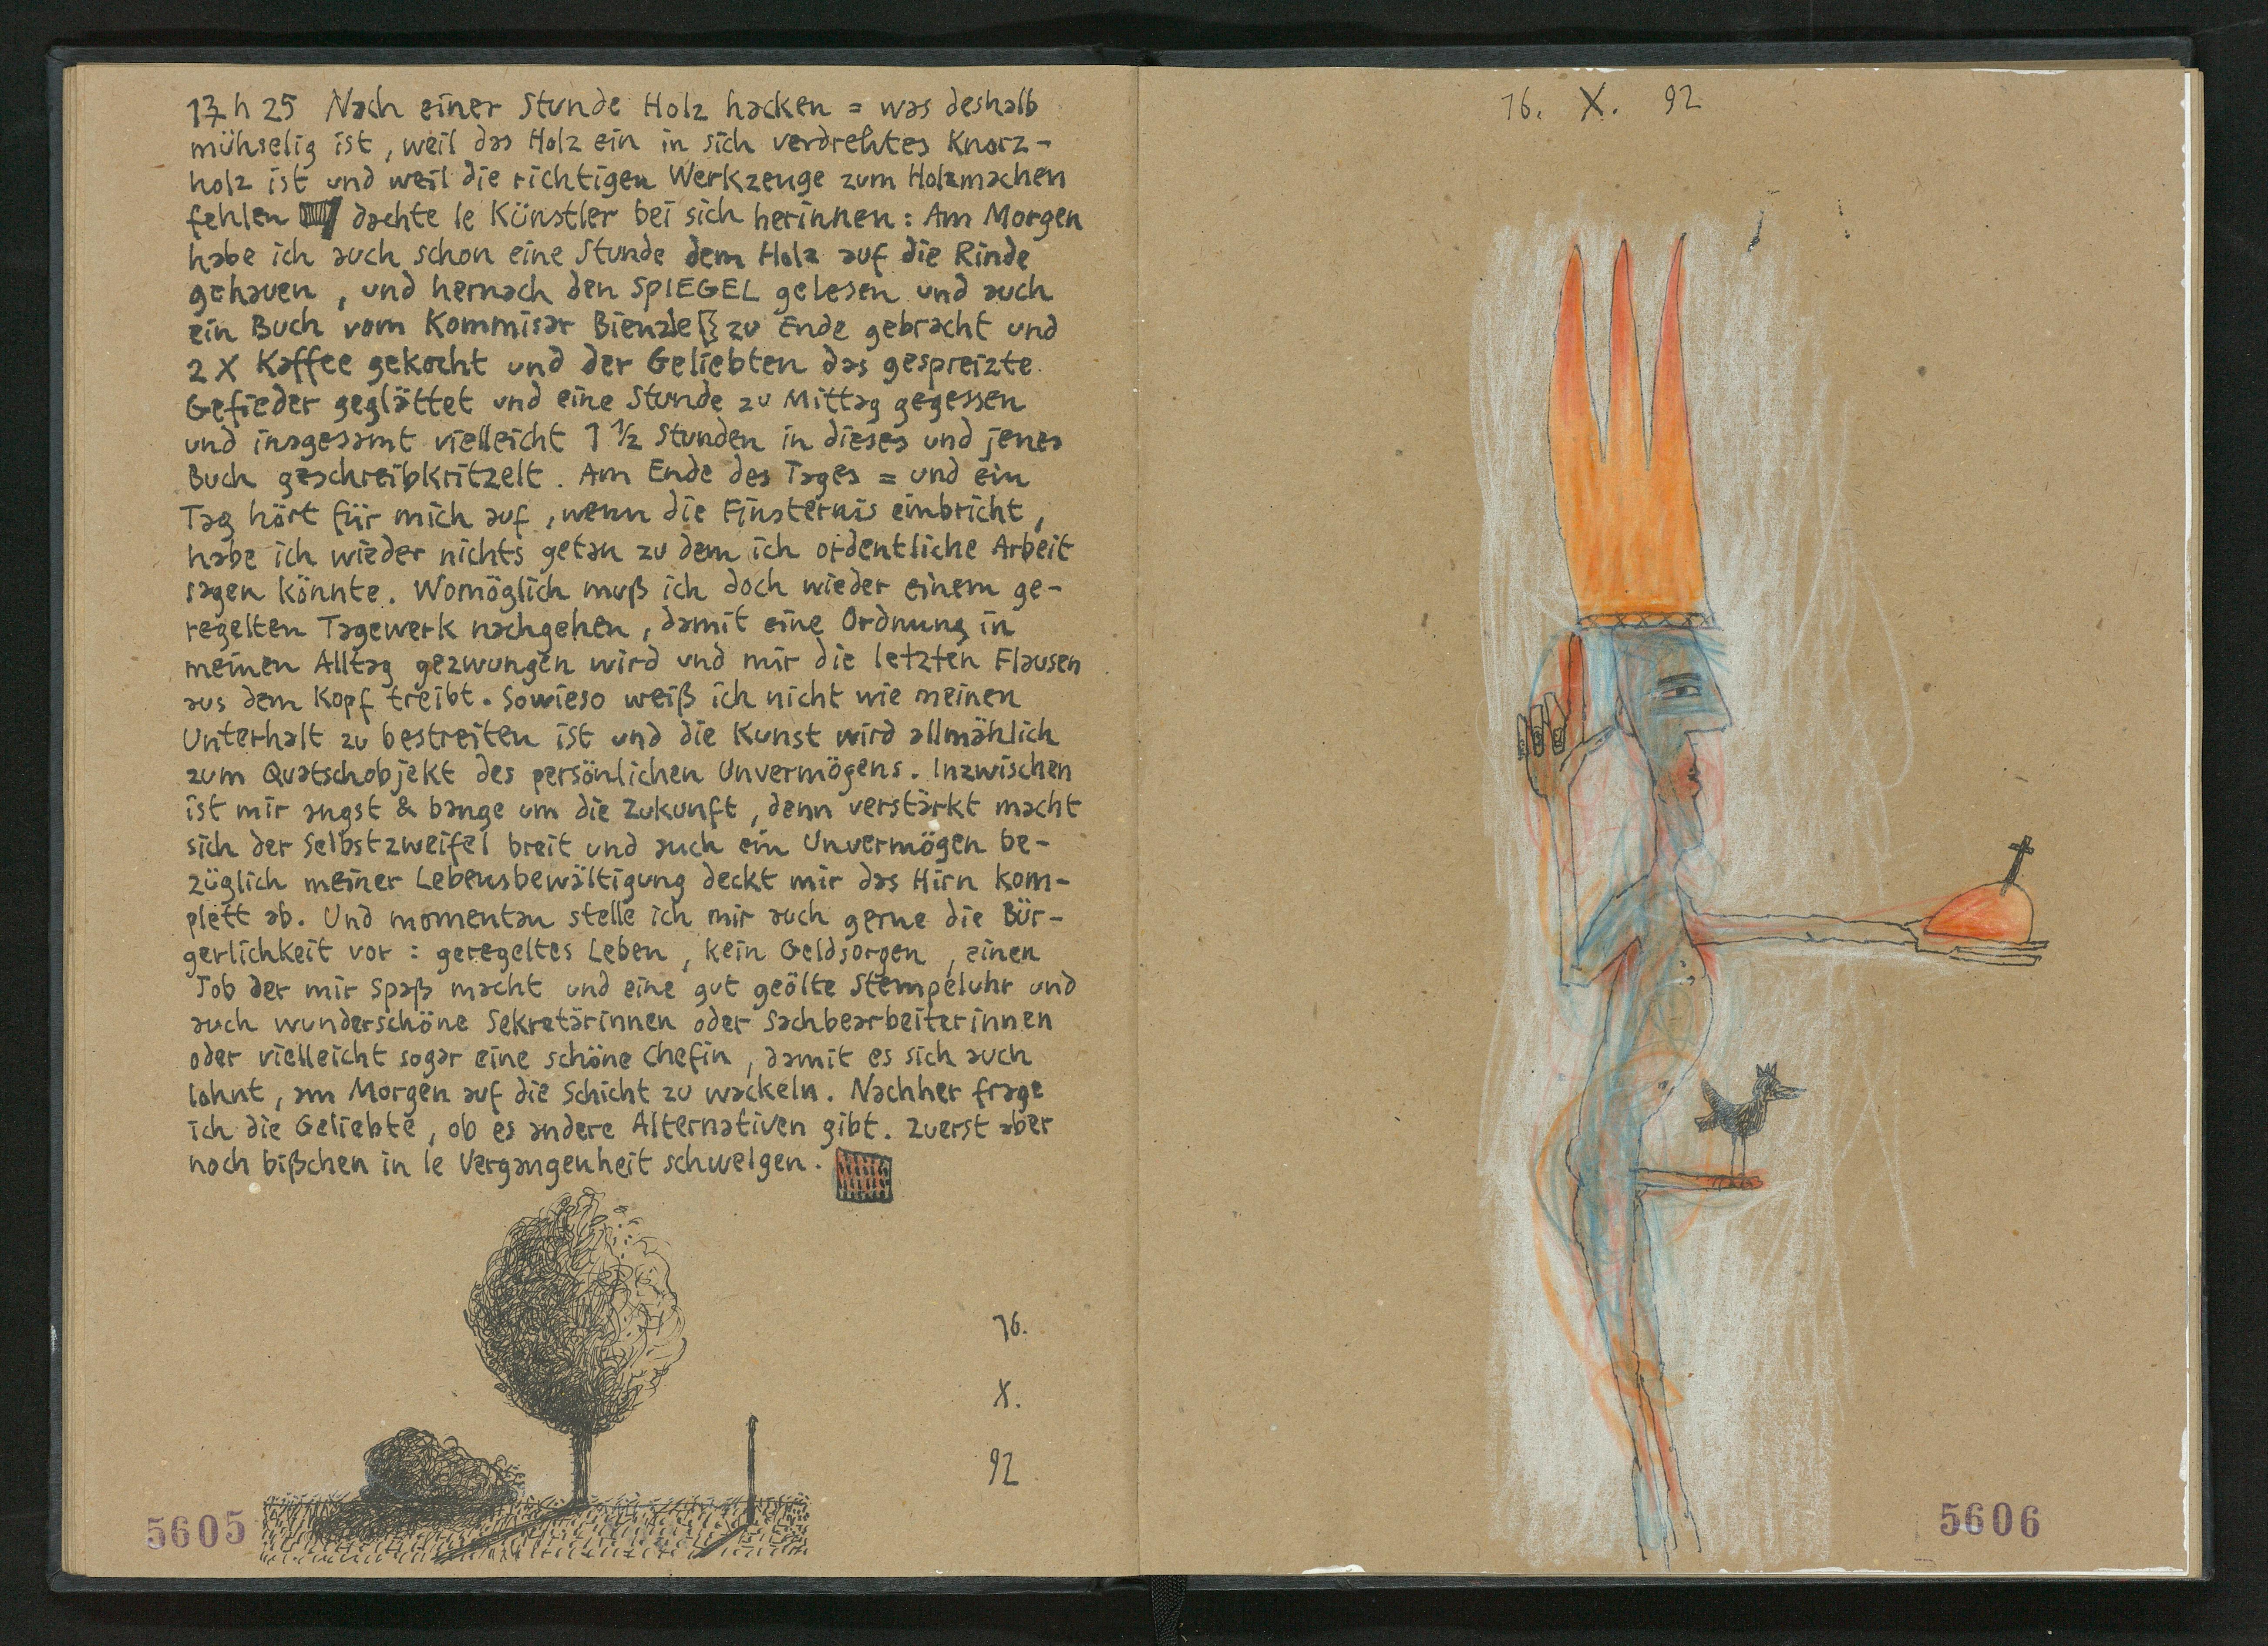 17 h 25 Nach einer Stunde Holz hacken = was deshalb
mühselig ist, weil das Holz ein in sich verdrehtes Knorz-
holz ist und weil die richtigen Werkzeuge zum Holzmachen
fehlen dachte le Künstler bei sich herinnen: Am Morgen
habe ich auch schon eine Stunde dem Holz auf die Rinde
gehauen, und hernach den SPIEGEL gelesen und auch
ein Buch vom Kommisar Bienzle zu Ende gebracht und
2 X Kaffee gekocht und der Geliebten das gespreizte
Gefieder geglättet und eine Stunde zu Mittag gegessen
und insgesamt vielleicht 1 ½ Stunden in dieses und jenes
Buch geschreibkritzelt. Am Ende des Tages = und ein
Tag hört für mich auf, wenn die Finsternis einbricht,
habe ich wieder nichts getan zu dem ich ordentliche Arbeit
sagen könnte. Womöglich muß ich doch wieder einem ge-
regelten Tagewerk nachgehen, damit eine Ordnung in
meinen Alltag gezwungen wird und mir die letzten Flausen
aus dem Kopf treibt. Sowieso weiß ich nicht wie meinen
Unterhalt zu bestreiten ist und die Kunst wird allmählich
zum Quatschobjekt des persönlichen Unvermögens. Inzwischen
ist mir angst & bange um die Zukunft, denn verstärkt macht
sich der Selbstzweifel breit und auch ein Unvermögen be-
züglich meiner Lebensbewältigung deckt mir das Hirn kom-
plett ab. Und momentan stelle ich mir auch gerne die Bür-
gerlichkeit vor: geregeltes Leben, kein Geldsorgen, einen
Job der mir Spaß macht und eine gut geölte Stempeluhr und
auch wunderschöne Sekretärinnen oder Sachbearbeiterinnen
oder vielleicht sogar eine schöne Chefin, damit es sich auch
lohnt, am Morgen auf die Schicht zu wackeln. Nachher frage
ich die Geliebte, ob es andere Alternativen gibt. Zuerst aber
noch bißchen in le Vergangenheit schwelgen.
16.
X.
92
5605
16. X. 92
5606